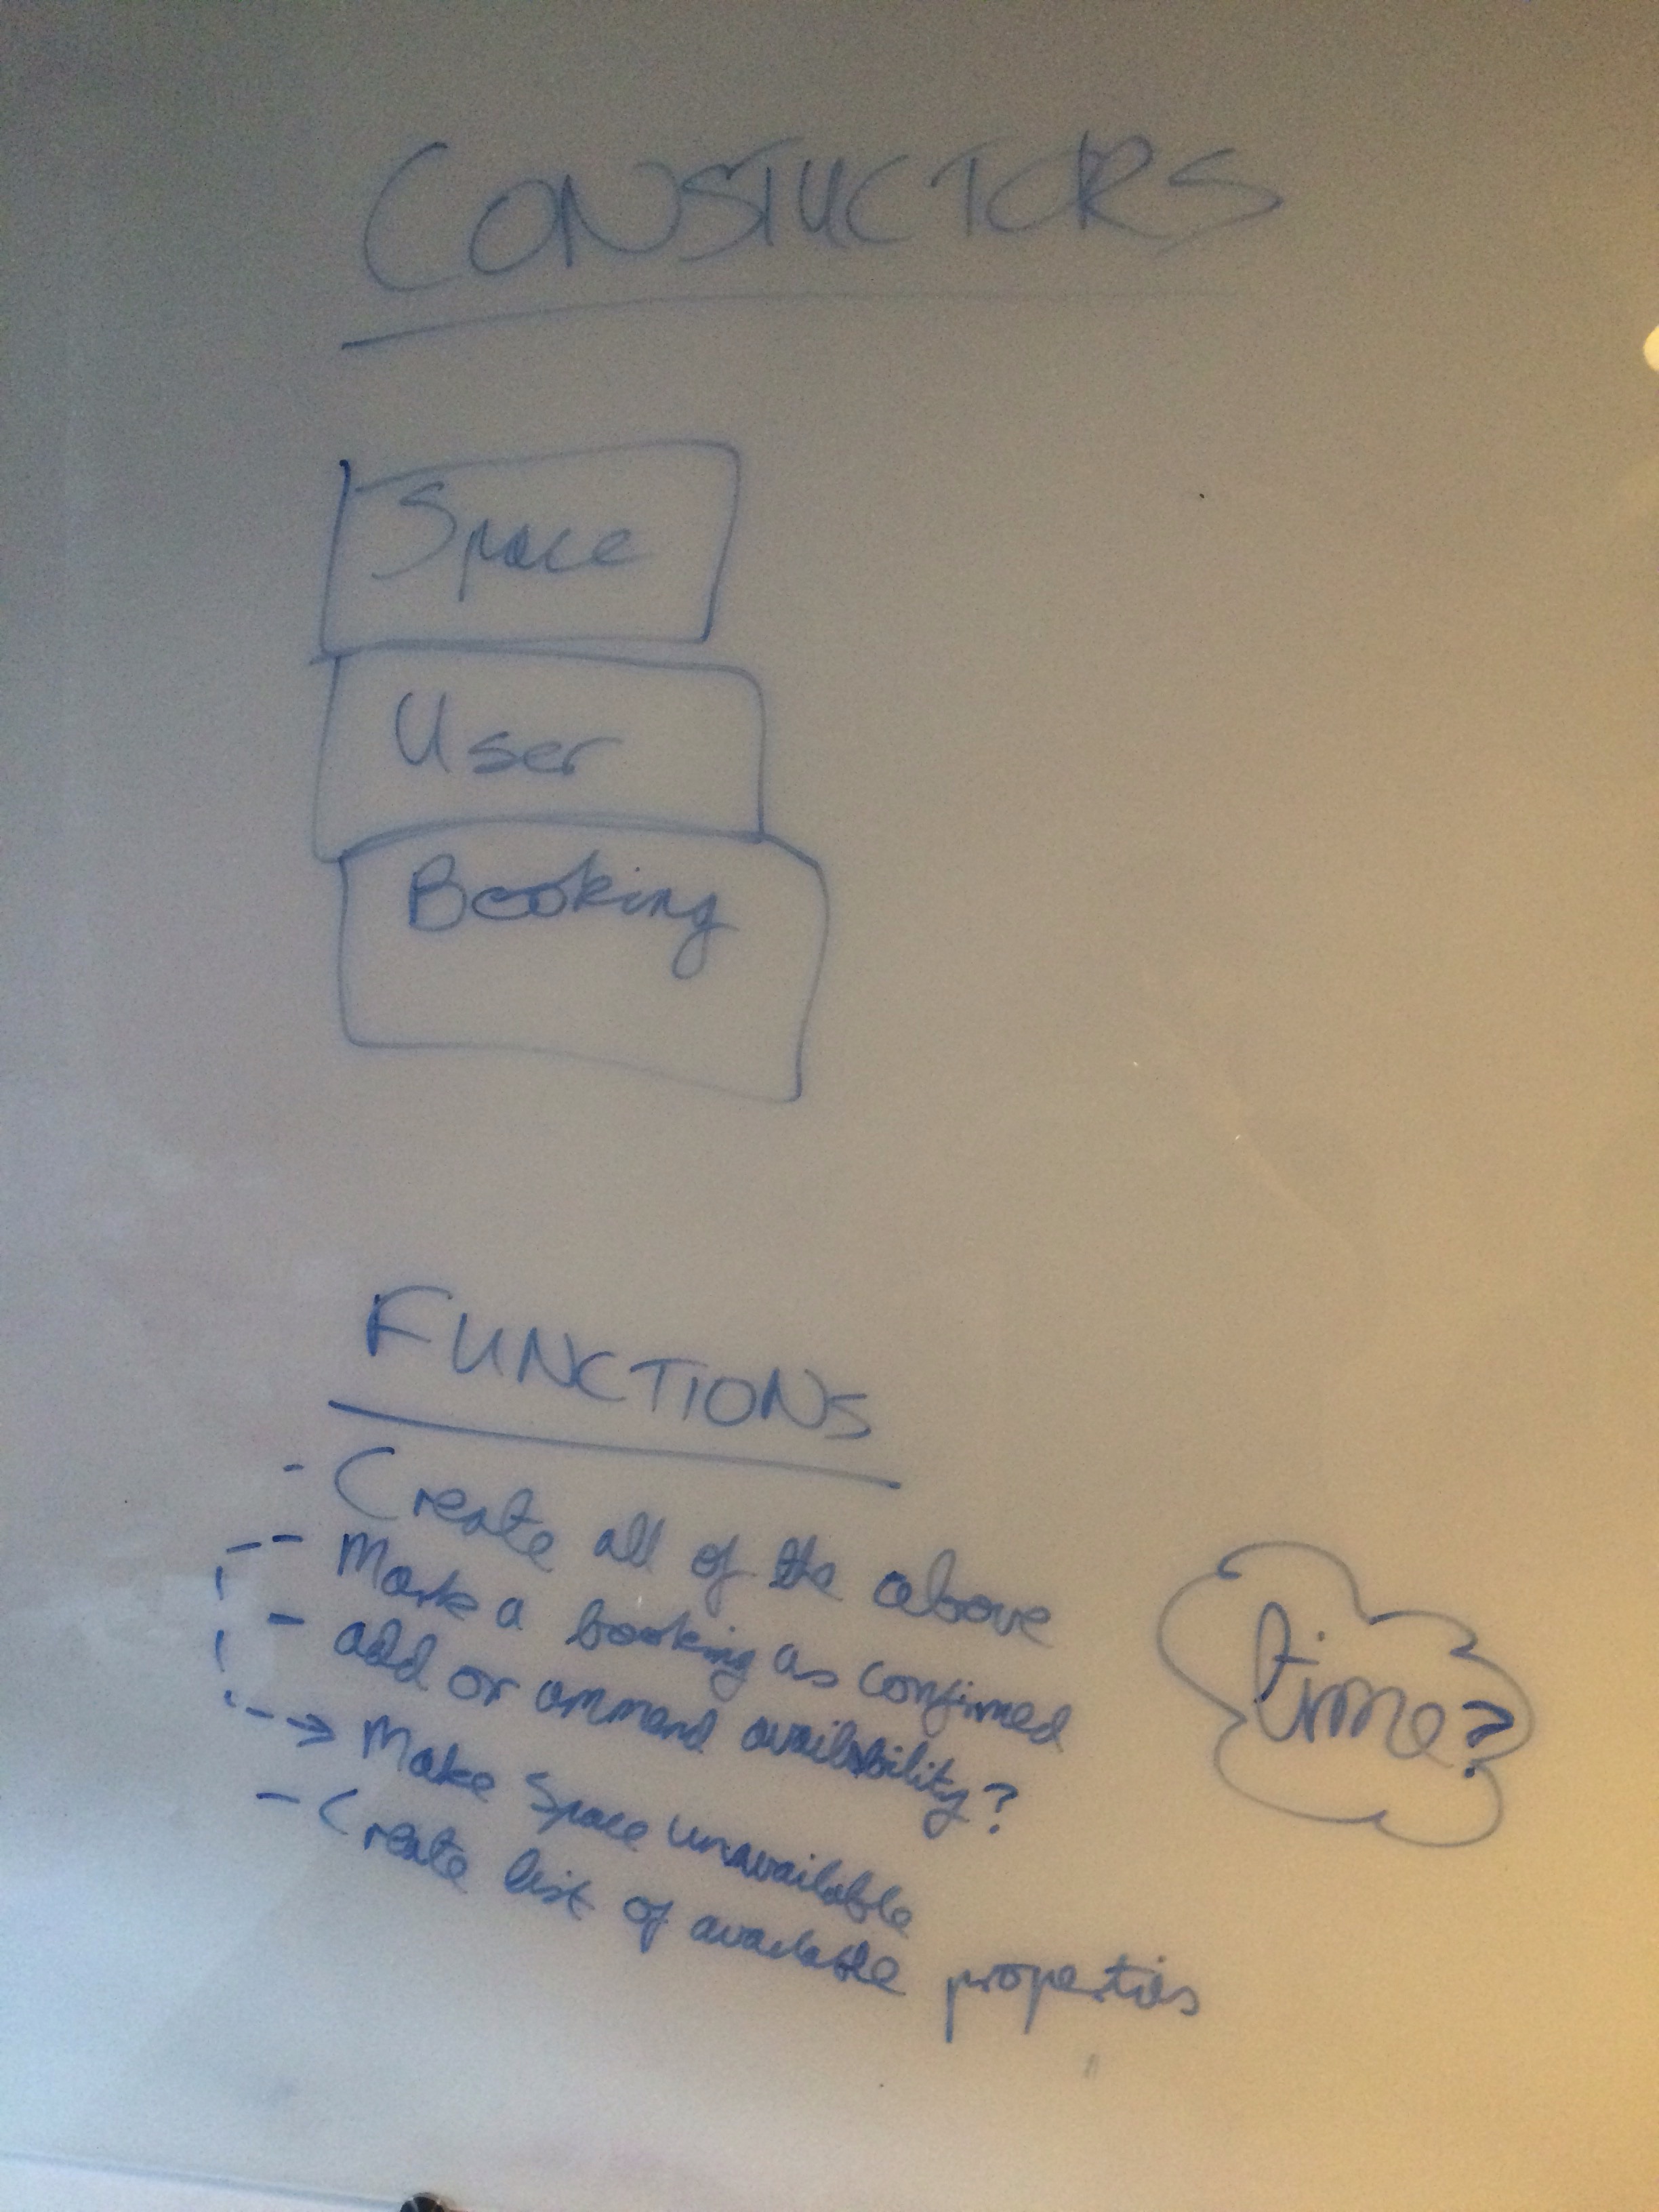 CONSTUCTORS
Space
User
Booking
FUNCTIONS
- Create all of the above
- Mark a booking as confirmed
- add or ammend availability?
Make Space unavailable
- Create list of available properties
time?